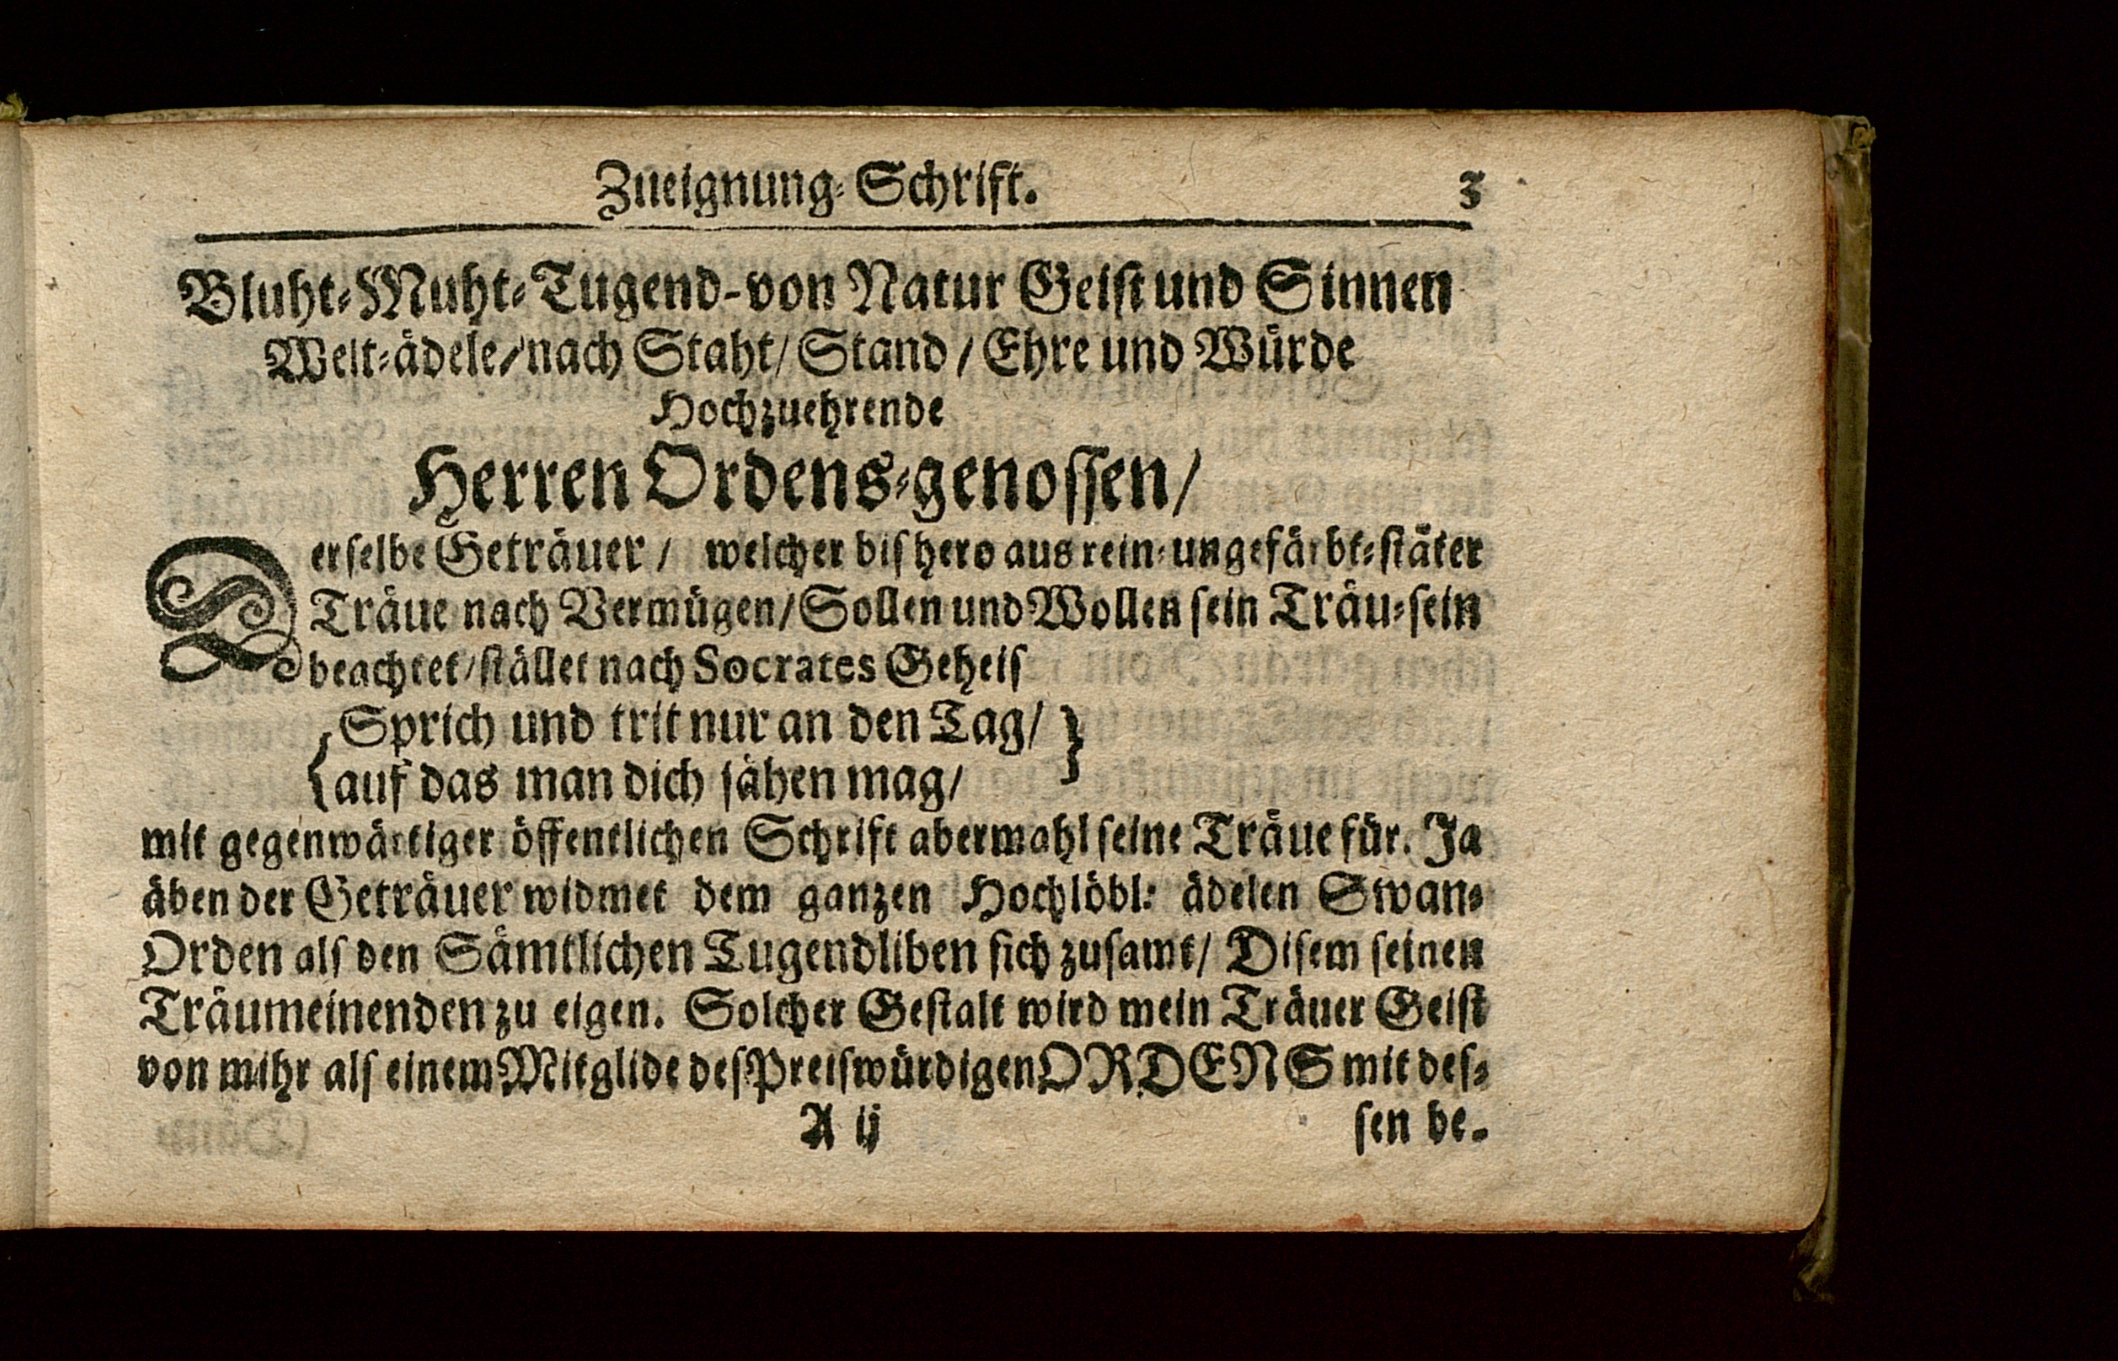 Zueignung-Schrift. 3
Bluht-Muht-Tugend-von Natur Geist und Sinnen
Welt-ädele/nach Staht/ Stand / Ehre und Würde
Hochzuehrende
Herren Ordens-genossen/
Derselbe Geträuer / welcher bishero aus rein-ungefärbt-stäter
Träue nach Vermügen/Sollen und Wollen sein Träu-sein
beachtet/stället nach Socrates Geheis
Sprich und trit nur an den Tag/
auf das man dich sähen mag/
mit gegenwärtiger öffentlichen Schrift abermahl seine Träue für. Ja
äben der Geträuer widmet dem ganzen Hochlöbl: ädelen Swan-
Orden als den Sämtlichen Tugendliben sich zusamt/ Disem seinen
Träumeinenden zu eigen. Solcher Gestalt wird mein Träuer Geist
von mihr als einem Mitglide des Preiswürdigen ORDENS mit des-
A ij sen be-